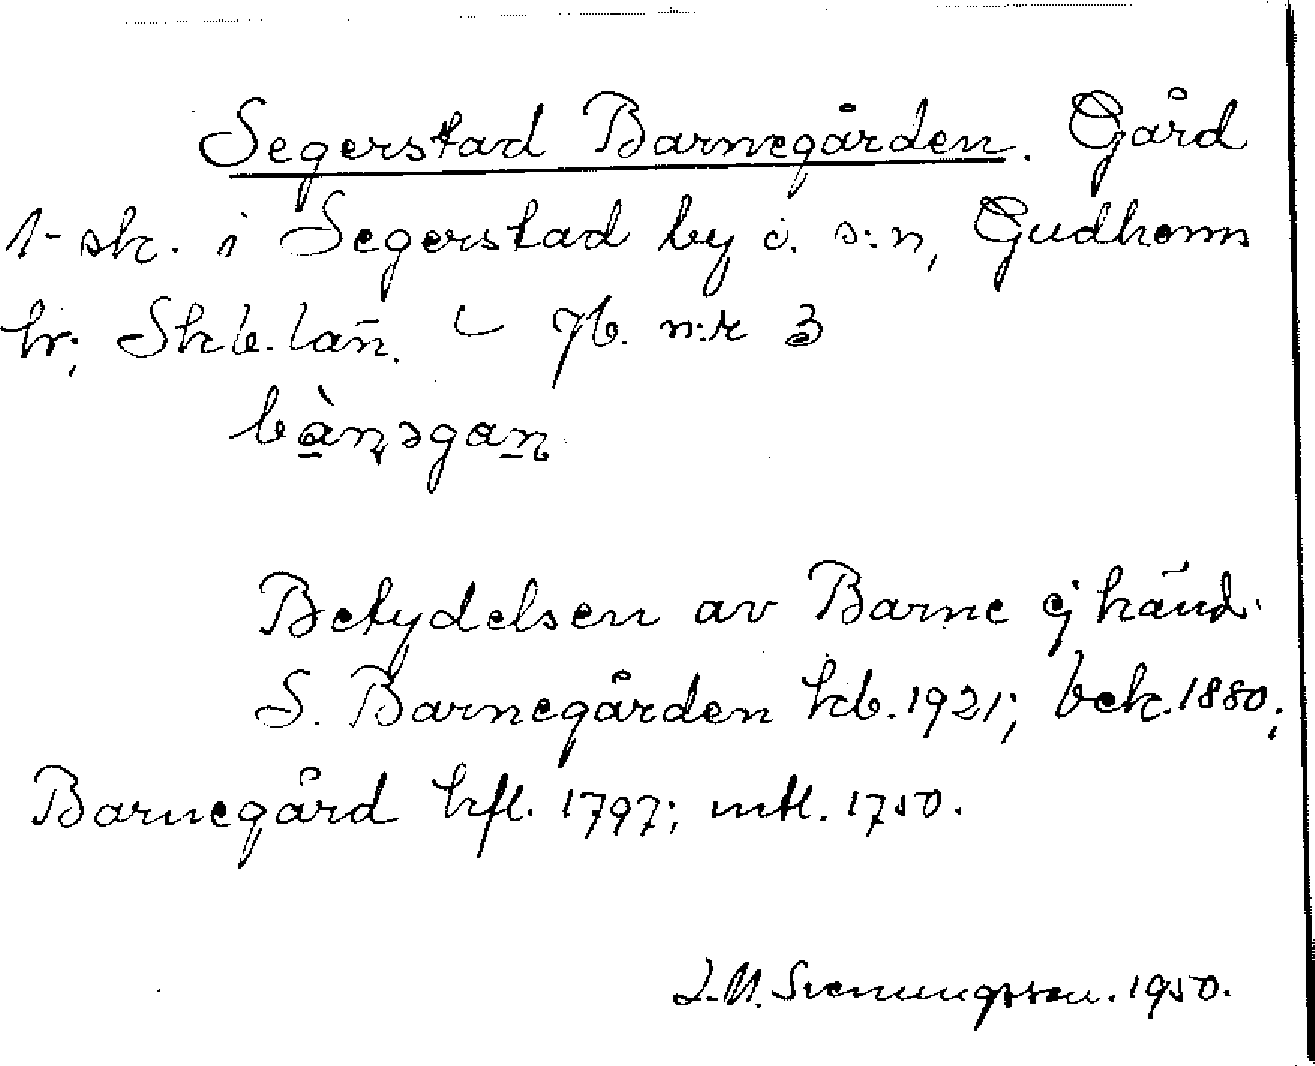 Segerstad Barnegården. Gård
1-sk. i Segerstad by o. s:n, Gudhems
hr, Skb. län. Jb. n:r 3
bànəgan
Betydelsen av Barne ej känd.
S. Barnegården kb. 1921; bek. 1880;
Barnegård hfl. 1797; mtl. 1750.
J. M. Svenungsson. 1950.